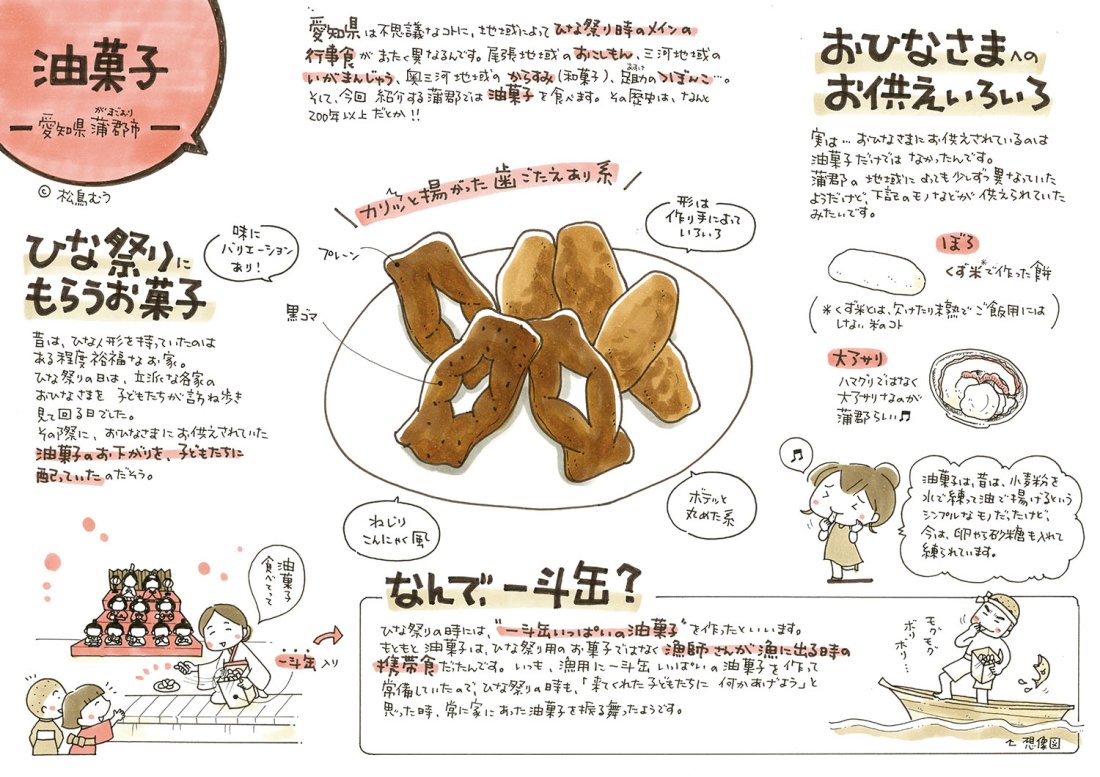 油菓子
愛知県 蒲郡市
がまごおり
© 松鳥むう
愛知県は不思議なコトに、地域によってひな祭り時のメインの
行事食がまたく異なるんです。尾張地域のおこしもん、三河地域の
いがまんじゅう、奥三河地域のからすみ(和菓子)、足助のつぼんこ…。
あすけ
そして、今回紹介する蒲郡では油菓子を食べます。その歴史は、なんと
200年以上だとか!!
ひな祭りに
もらうお菓子
昔は、ひな人形を持っていたのは
ある程度裕福なお家。
ひな祭りの日は、立派な各家の
おひなさまを 子どもたちが訪ね歩き
見て回る日でした。
その際に、おひなさまにお供えされていた
油菓子のお下がりを、子どもたちに
配っていたのだそう。
油菓子
食べてって
一斗缶入り
カリッと揚がった歯ごたえあり系
味に
バリエーション
あり!
プレーン
黒ゴマ
形は
作り手によって
いろいろ
ねじり
こんにゃく風
ボテッと
丸めた系
おひなさまへの
お供えいろいろ
実は…おひなさまにお供えされているのは
油菓子だけでは なかったんです。
蒲郡の地域によっても少しずつ異なっていた
ようだけど、下記のモノなどが供えられていた
みたいです。
ぼろ
くず米*で作った餅
(*くず米とは、欠けたり未熟でご飯用には
しない米のコト)
大アサリ
ハマグリではなく
大アサリなのが
蒲郡らしい♫
♫
油菓子は、昔は、小麦粉を
水で練って油で揚げるという
シンプルなモノだったけど、
今は、卵や砂糖も入れて
練られています。
なんで、一斗缶?
ひな祭りの時には、"一斗缶いっぱいの油菓子"を作ったといいます。
もともと油菓子は、ひな祭り用のお菓子ではなく漁師さんが漁に出る時の
携帯食だたんです。いつも、漁用に一斗缶いっぱいの油菓子を作って
常備していたので、ひな祭りの時も、「来てくれた子どもたちに何かあげよう」と
思った時、常に家にあった油菓子を振る舞ったようです。
モグモグ
ボリボリ…
想像図